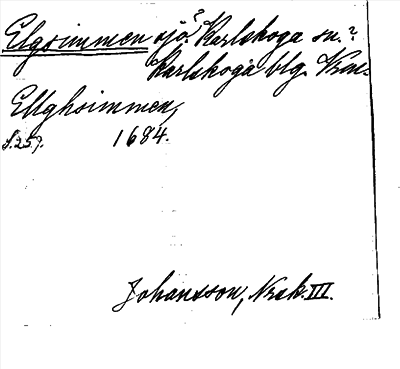 Elgsimmen sjö? Karlskoga sn.?
Karlskoga blg.
Ellghsimmen,
s. 259. 1684.
Johansson, Nrsk. III.